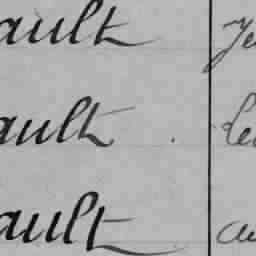 ault Je
ault . Le
ault au